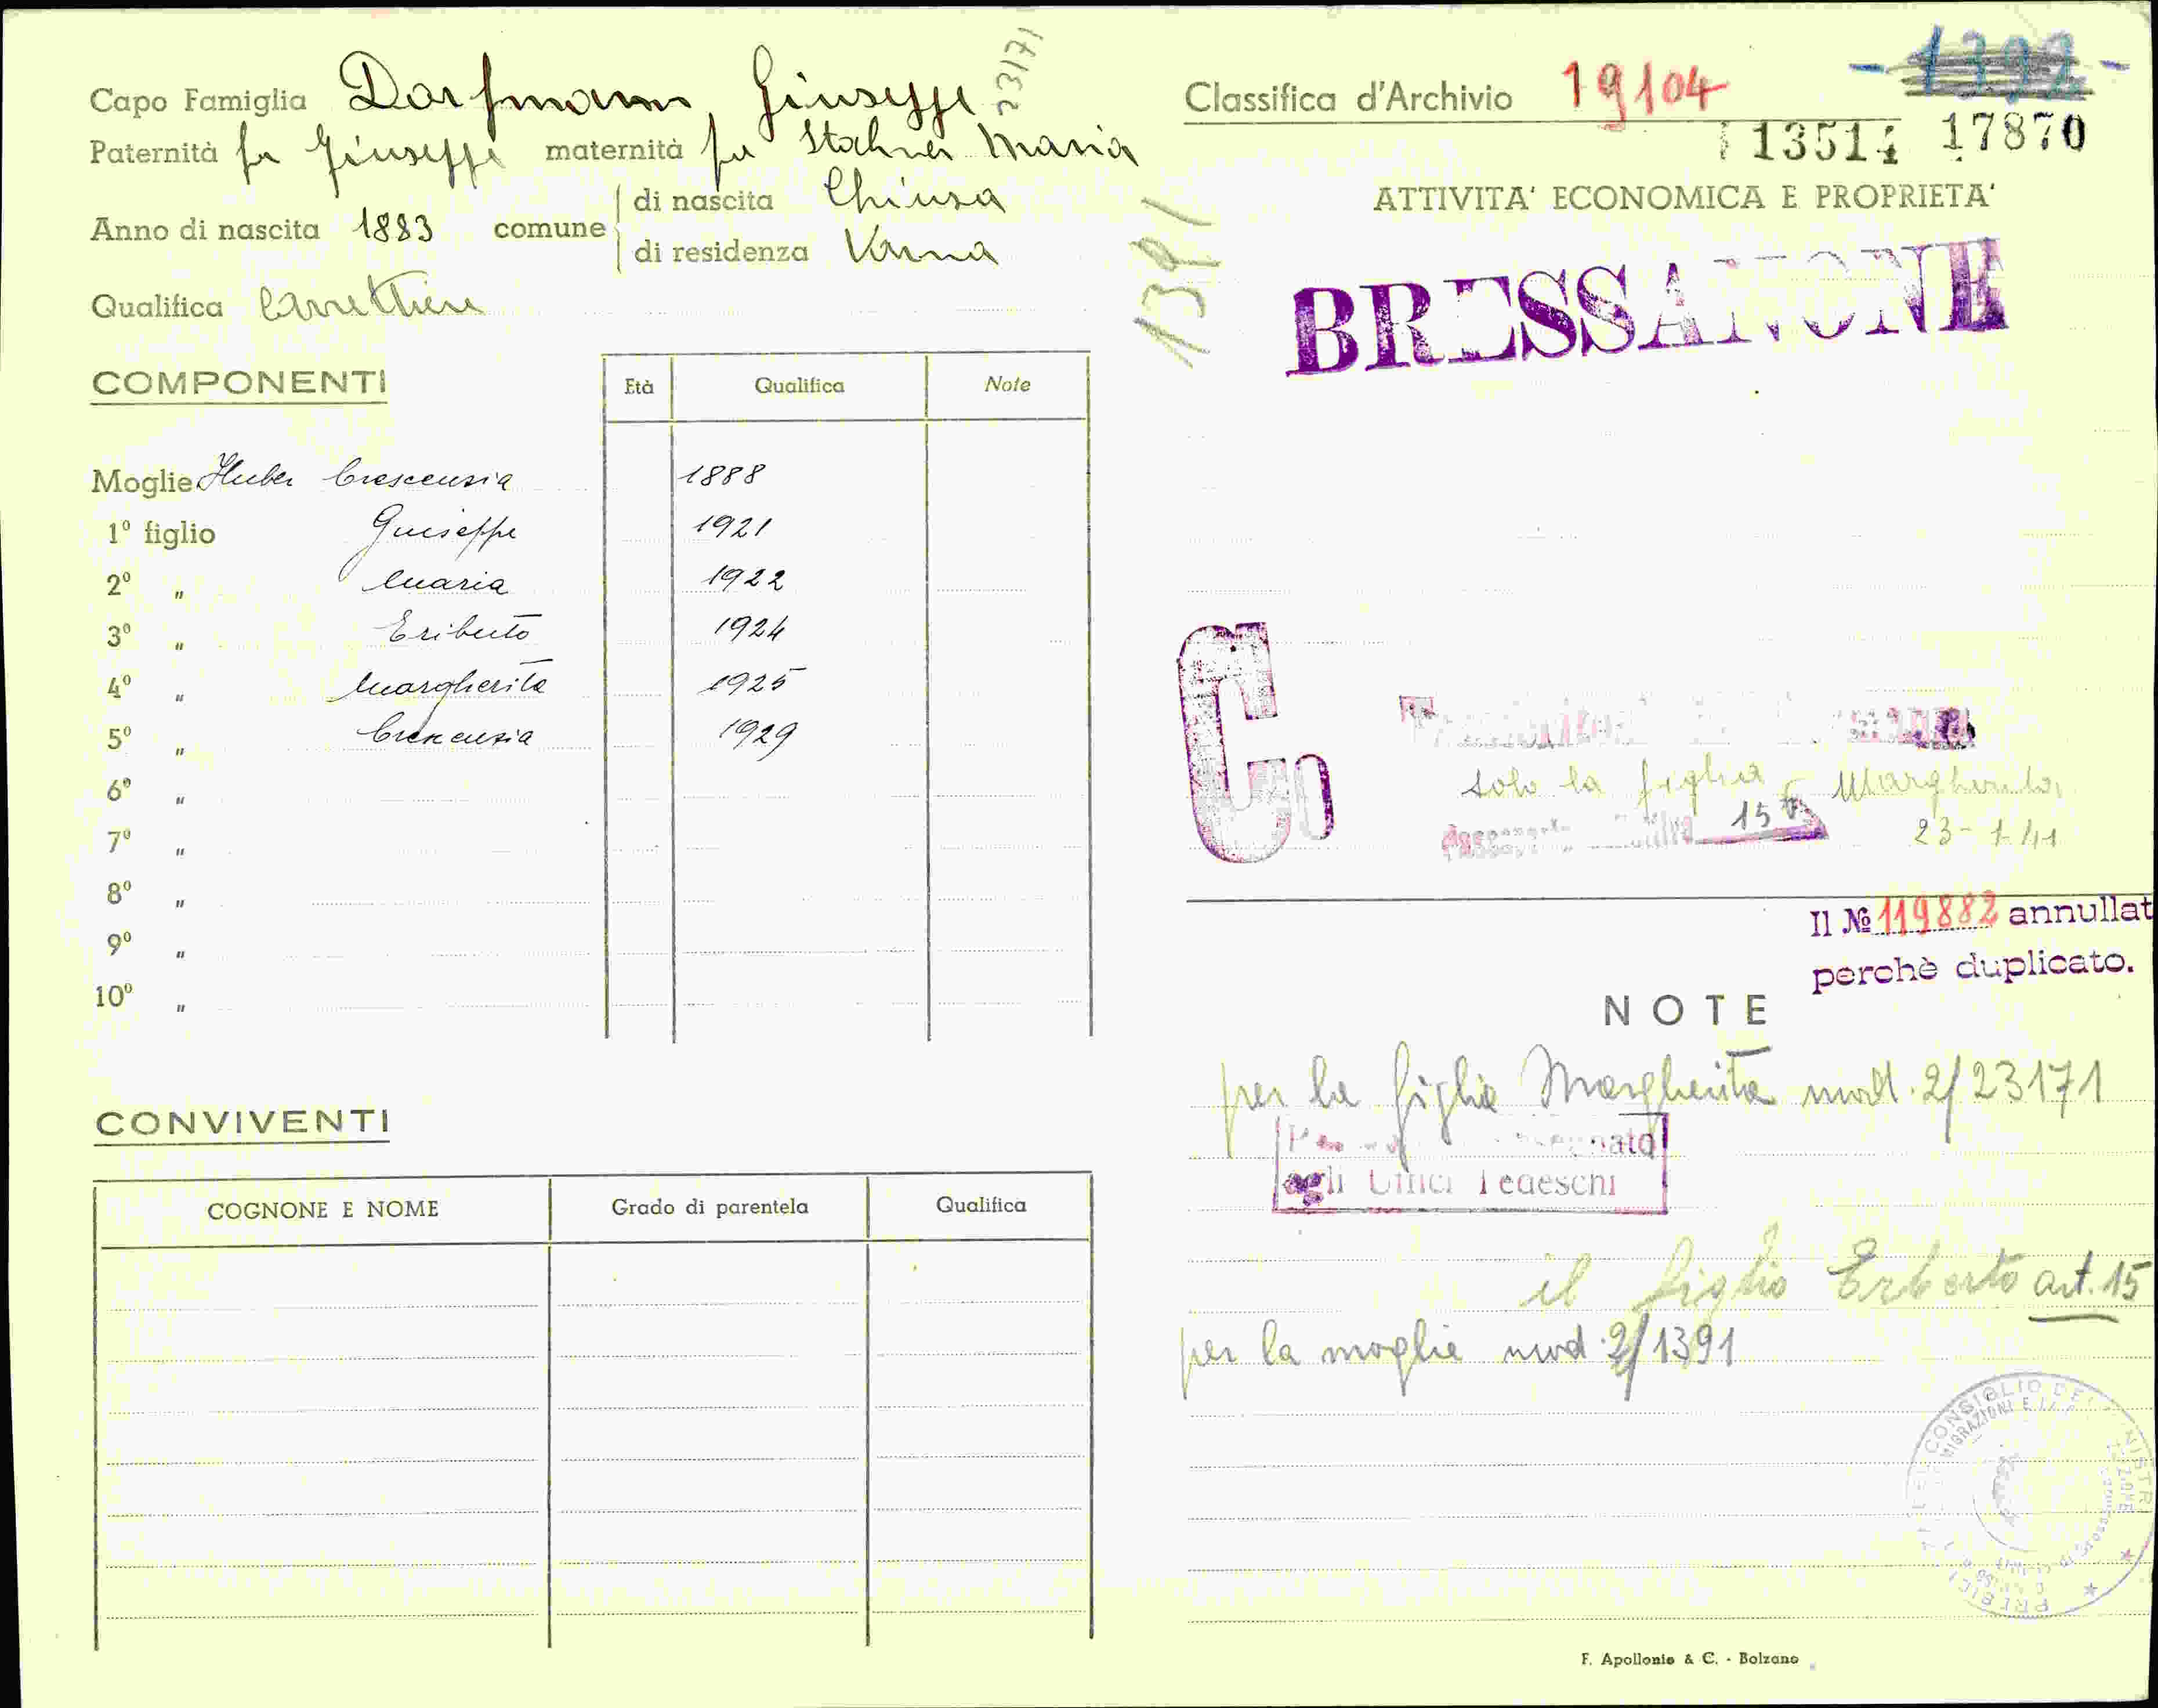 Capo Famiglia Dorfmann Giuseppe
23171
Paternità fu Giuseppe maternità fu Stahner Maria
Anno di nascita 1883 comune
di nascita Chiusa
di residenza Varna
Qualifica Carrettiere
COMPONENTI
Età Qualifica Note
Moglie Huber Crescenzia 1888
1º figlio Giuseppe 1921
2º " Maria 1922
3º " Eriberto 1924
4º " Margherita 1925
5º " Crescenzia 1929
6º "
7º "
8º "
9º "
10º "
CONVIVENTI
COGNONE E NOME Grado di parentela Qualifica
Classifica d'Archivio 19104
13514 17870
1391
ATTIVITA' ECONOMICA E PROPRIETA'
BRESSANONE
C
solo la figlia Margherita
15
23-1-41
Il № 119882 annullat
perchè duplicato.
NOTE
per la figlia Margherita mod. 2/23171
agli Uffici Tedeschi
il figlio Erberto art. 15
per la moglie mod. 2/1391
F. Apollonio & C. - Bolzano